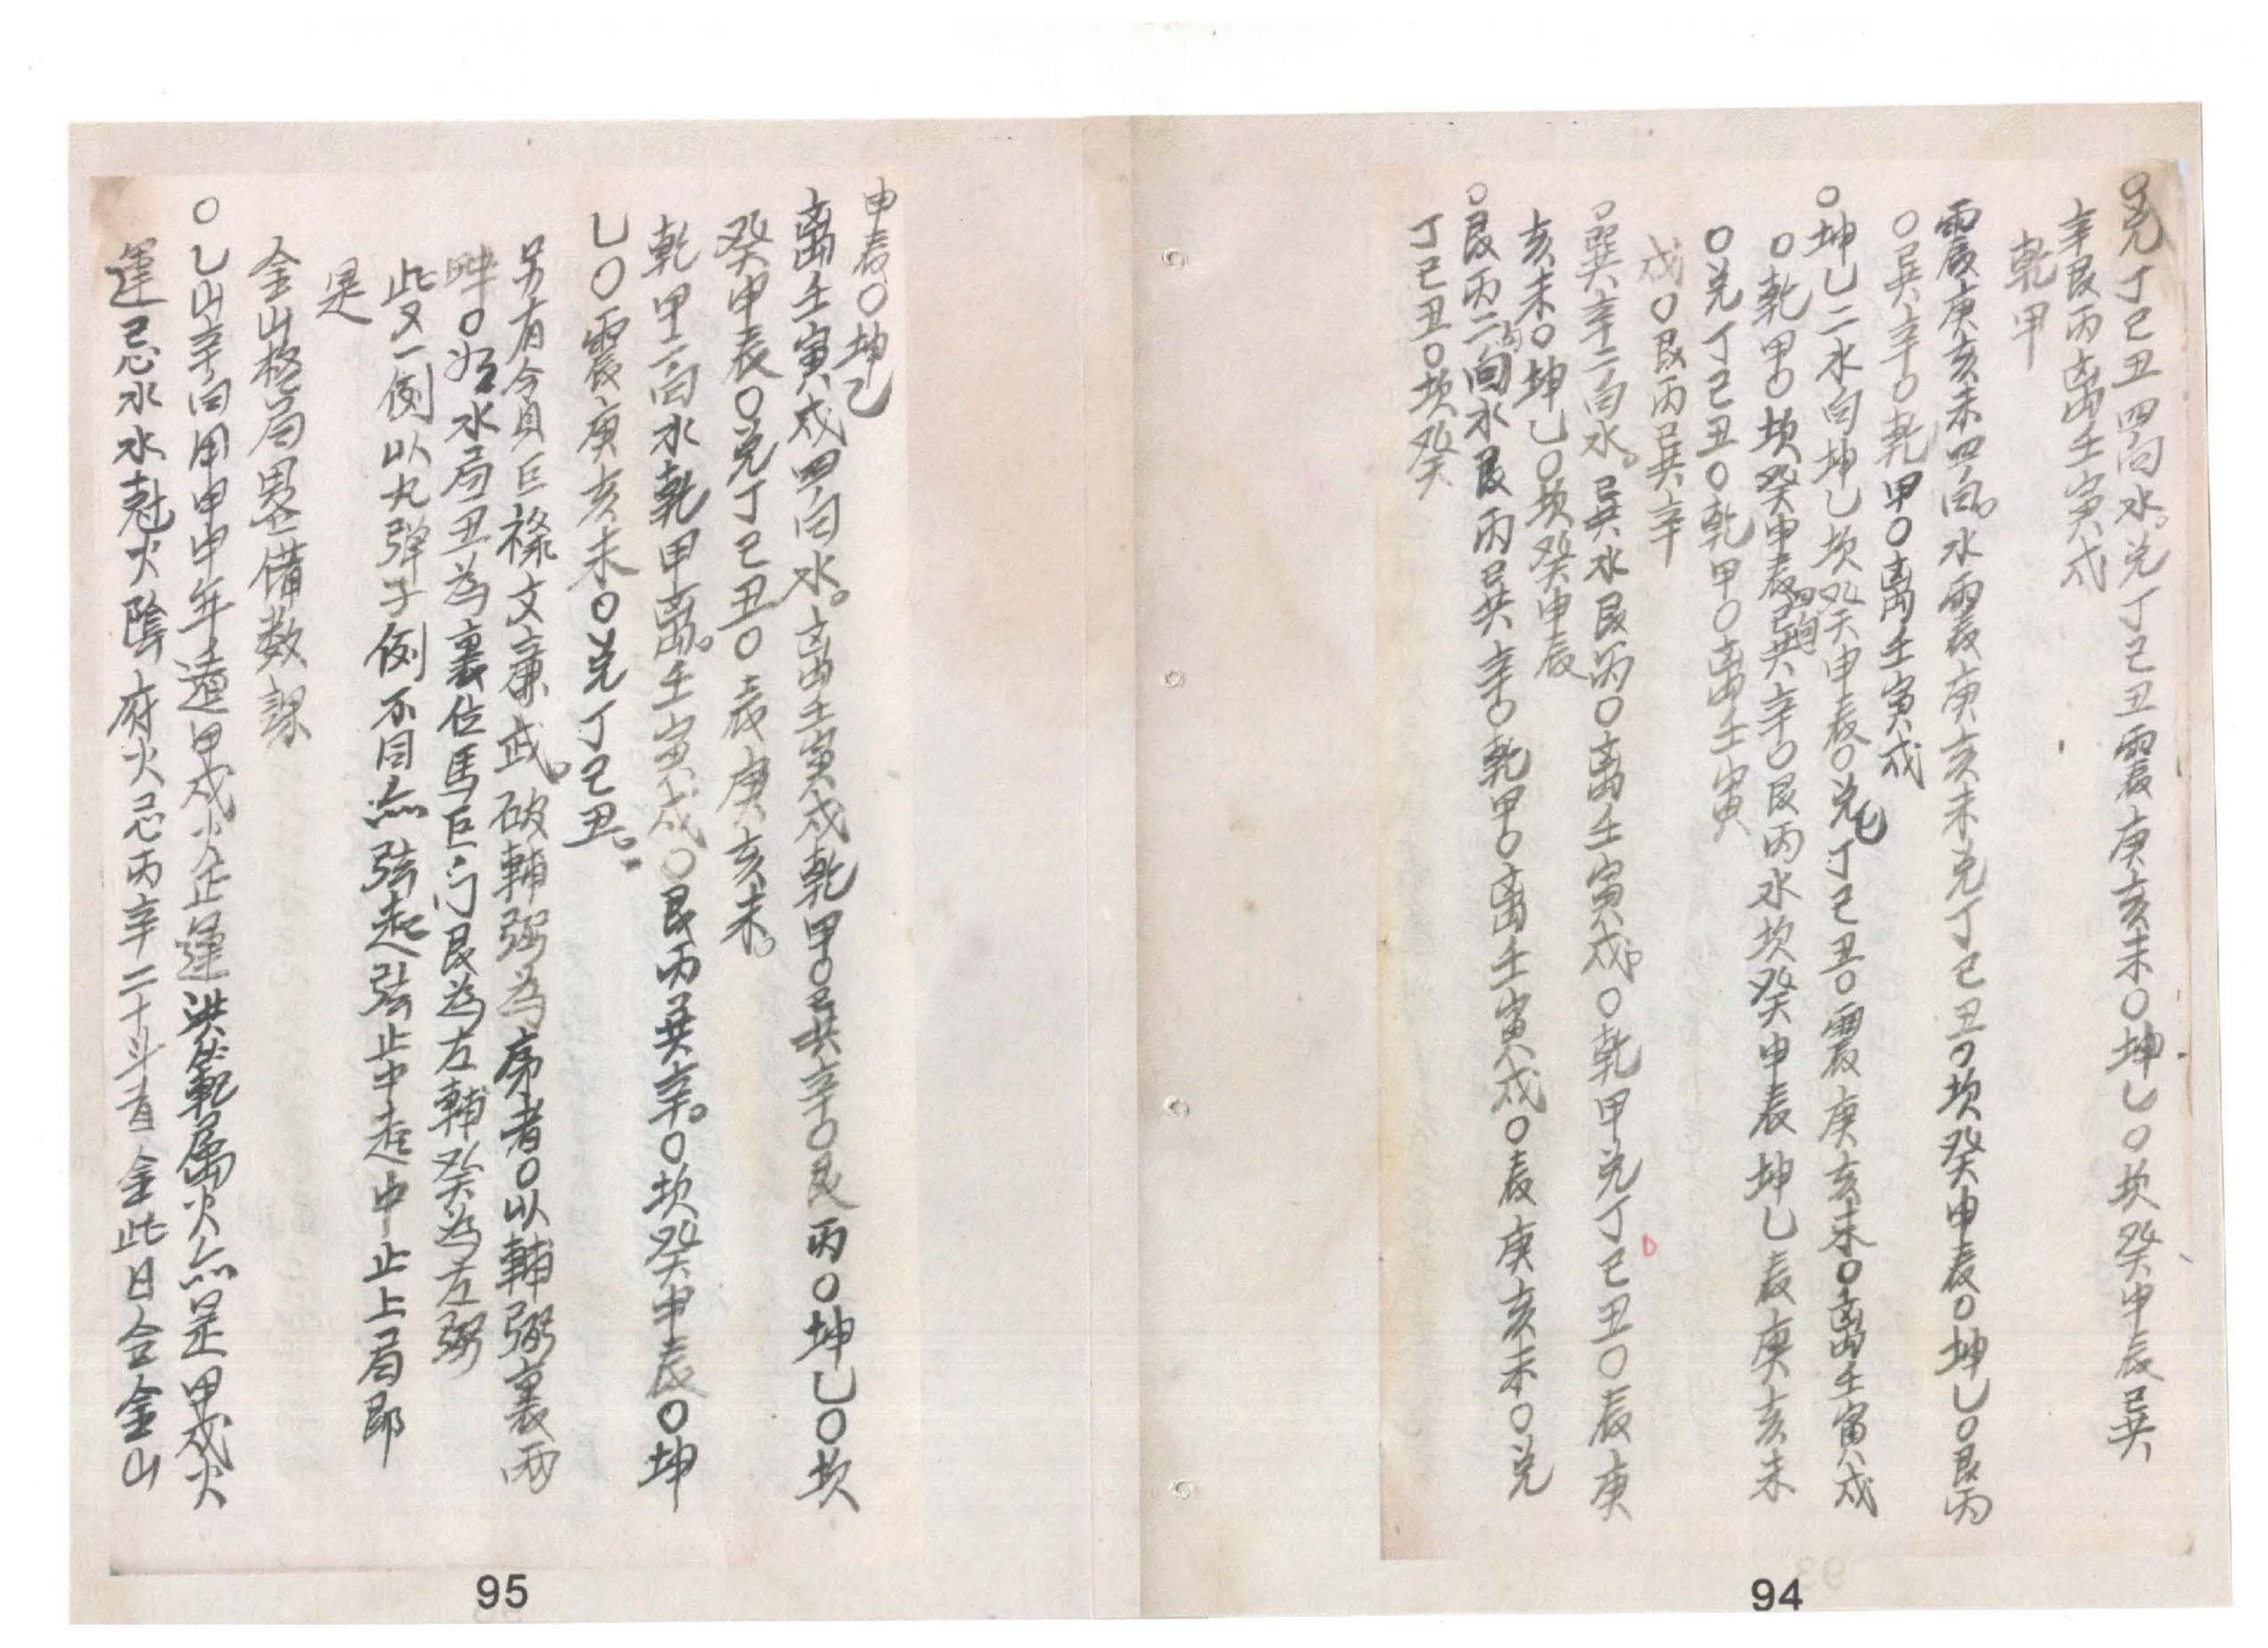 ○兑丁巳丑四向水。兑丁巳丑震庚亥未○坤乚○坎癸申辰巽
辛艮丙离壬寅戌
乾甲
震庚亥未四向。水震庚亥未兑丁巳丑○坎癸申辰○坤乚○艮丙
○巽辛○乾甲○离壬寅戌
○坤乚二水向坤乚坎癸申辰○兑丁巳丑○震庚亥未○离壬寅戌
○乾甲○坎癸申辰四向巽辛○艮丙水坎癸申辰坤乚辰庚亥未
○兑丁巳丑○乾甲○离壬寅
戌○艮丙巽辛
○巽辛二向水。巽水艮丙○离壬寅戌。○乾甲兑丁巳丑○辰庚
亥未○坤乚○坎癸申辰
○艮丙二向水艮丙巽辛○乾甲○离壬寅戌○辰庚亥未○兑
丁巳丑○坎癸
94
申辰○坤乙
离壬寅戌四向水。离壬寅戌乾甲○巽辛○艮丙○坤乚○坎
癸甲辰○兑丁巳丑○辰庚亥未。
乾甲二向水乾甲离。壬寅戌○艮丙巽辛。○坎癸申辰○坤
乚○震庚亥未○兑丁巳丑。
另有令貞巨祿文廉武。破輔弼為序者○以輔弼裏両
畔○如水局丑為裏位馬巨门艮為左輔癸為左弼
此又一例以九弹子例不同亦弦起弦止中起中止上局即
是
金山格局異备備数課
○乚山辛向用甲申年遠甲戌火正運洪範属火亦是甲戌火
運忌水水尅火陰府火忌丙辛二十斗首金此日合金山
95